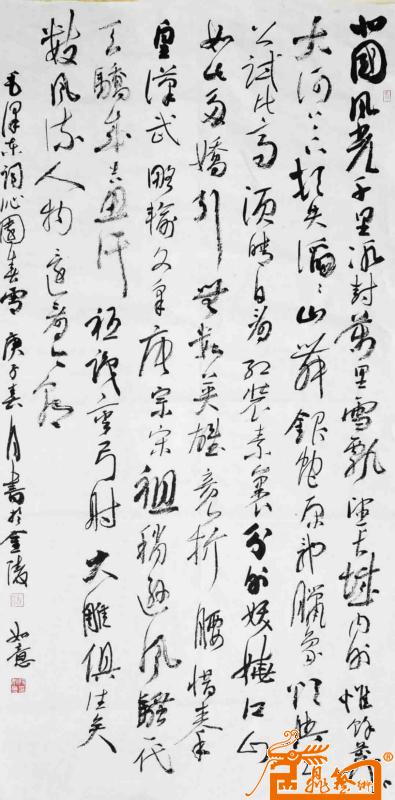 北国风光千里冰封万里雪飘望长城内外惟余莽
大河上下顿失滔滔山舞银蛇原驰蜡象欲与天
公试比高须晴日看红装素裹分外妖娆江山
如此多娇引无数英雄竞折腰惜秦
皇汉武略输文采唐宗宋祖稍逊风骚一代
天骄成吉思汗祇识弯弓射大雕俱往矣
数风流人物还看今朝
毛泽东词沁园春雪庚子春月书于金陵 如意